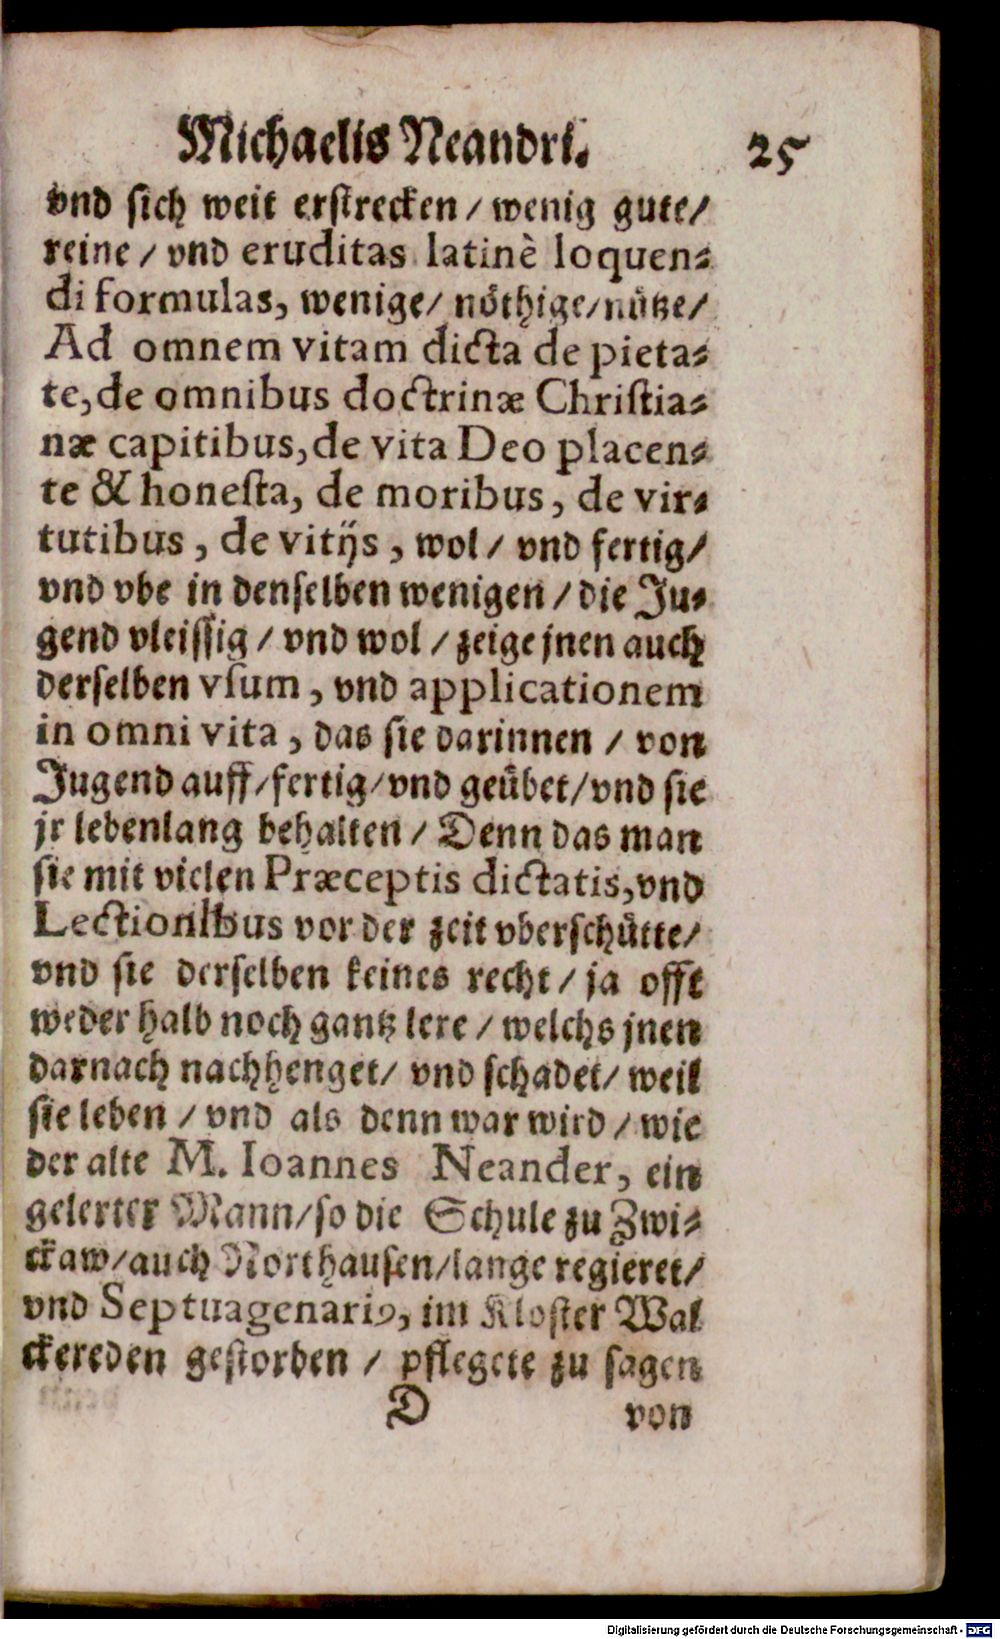 Michaelis Neandri. 25
vnd sich weit erstrecken / wenig gute/
reine / vnd eruditas latinè loquen⸗
di formulas, wenige/ nöthige/nütze/
Ad omnem vitam dicta de pieta⸗
te, de omnibus doctrinæ Christia⸗
næ capitibus, de vita Deo placen⸗
te & honesta, de moribus, de vir⸗
tutibus, de vitijs, wol/ vnd fertig/
vnd vbe in denselben wenigen / die Ju⸗
gend vleissig / vnd wol / zeige jnen auch
derselben vsum, vnd applicationem
in omni vita, das sie darinnen / von
Jugend auff/fertig/vnd geübet/vnd sie
jr lebenlang behalten / Denn das man
sie mit vielen Præceptis dictatis, vnd
Lectionibus vor der zeit vberschütte/
vnd sie derselben keines recht / ja offt
weder halb noch gantz lere / welchs jnen
darnach nachhenget/ vnd schadet/ weil
sie leben / vnd als denn war wird / wie
der alte M. Ioannes Neander, ein
gelerter Mann/so die Schule zu Zwi⸗
ckaw/auch Northausen/lange regieret/
vnd Septuagenariꝰ, im Kloster Wal
ckereden gestorben / pflegete zu sagen
D von
Digitalisierung gefördert durch die Deutsche Forschungsgemeinschaft - DFG